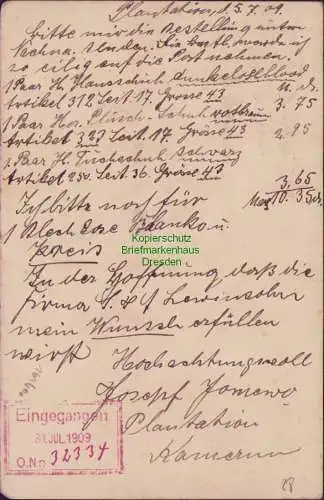 Plantation, d. 5.7.09.
bitte mir die Bestellung unter
Nachna. senden. Die
so eilig auf die Post nehmen.
1 Paar H. Hausschuh dunkeloselblood
M. d.
Artikel 312 Seit. 17. Gröse 43 3.75
1 Paar Her. Plüsch. Schuh rotbraun
Artikel 327 Seit. 17. Gröse 43 2.95
1 Paar H. Tuchschuh schwarz
Artikel 250. Seit. 36. Gröse 43 3.65
10.35
Ich bitte noch für
1 Blech Dose Blanko u.
Preis
In der Hoffnung, daß die
firma S. & f Lewinsohn
mein Wunsch erfüllen
wirst
Hochachtungsvoll
Josepf Jomewo
Plantation
Kamerun
Kopierschutz
Briefmarkenhaus
Dresden
Eingegangen
31 JUL 1909
O.No 32334